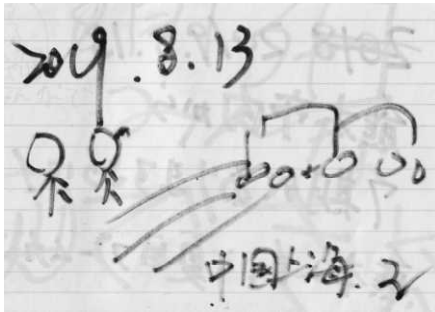 2019.8.13
中国上海.